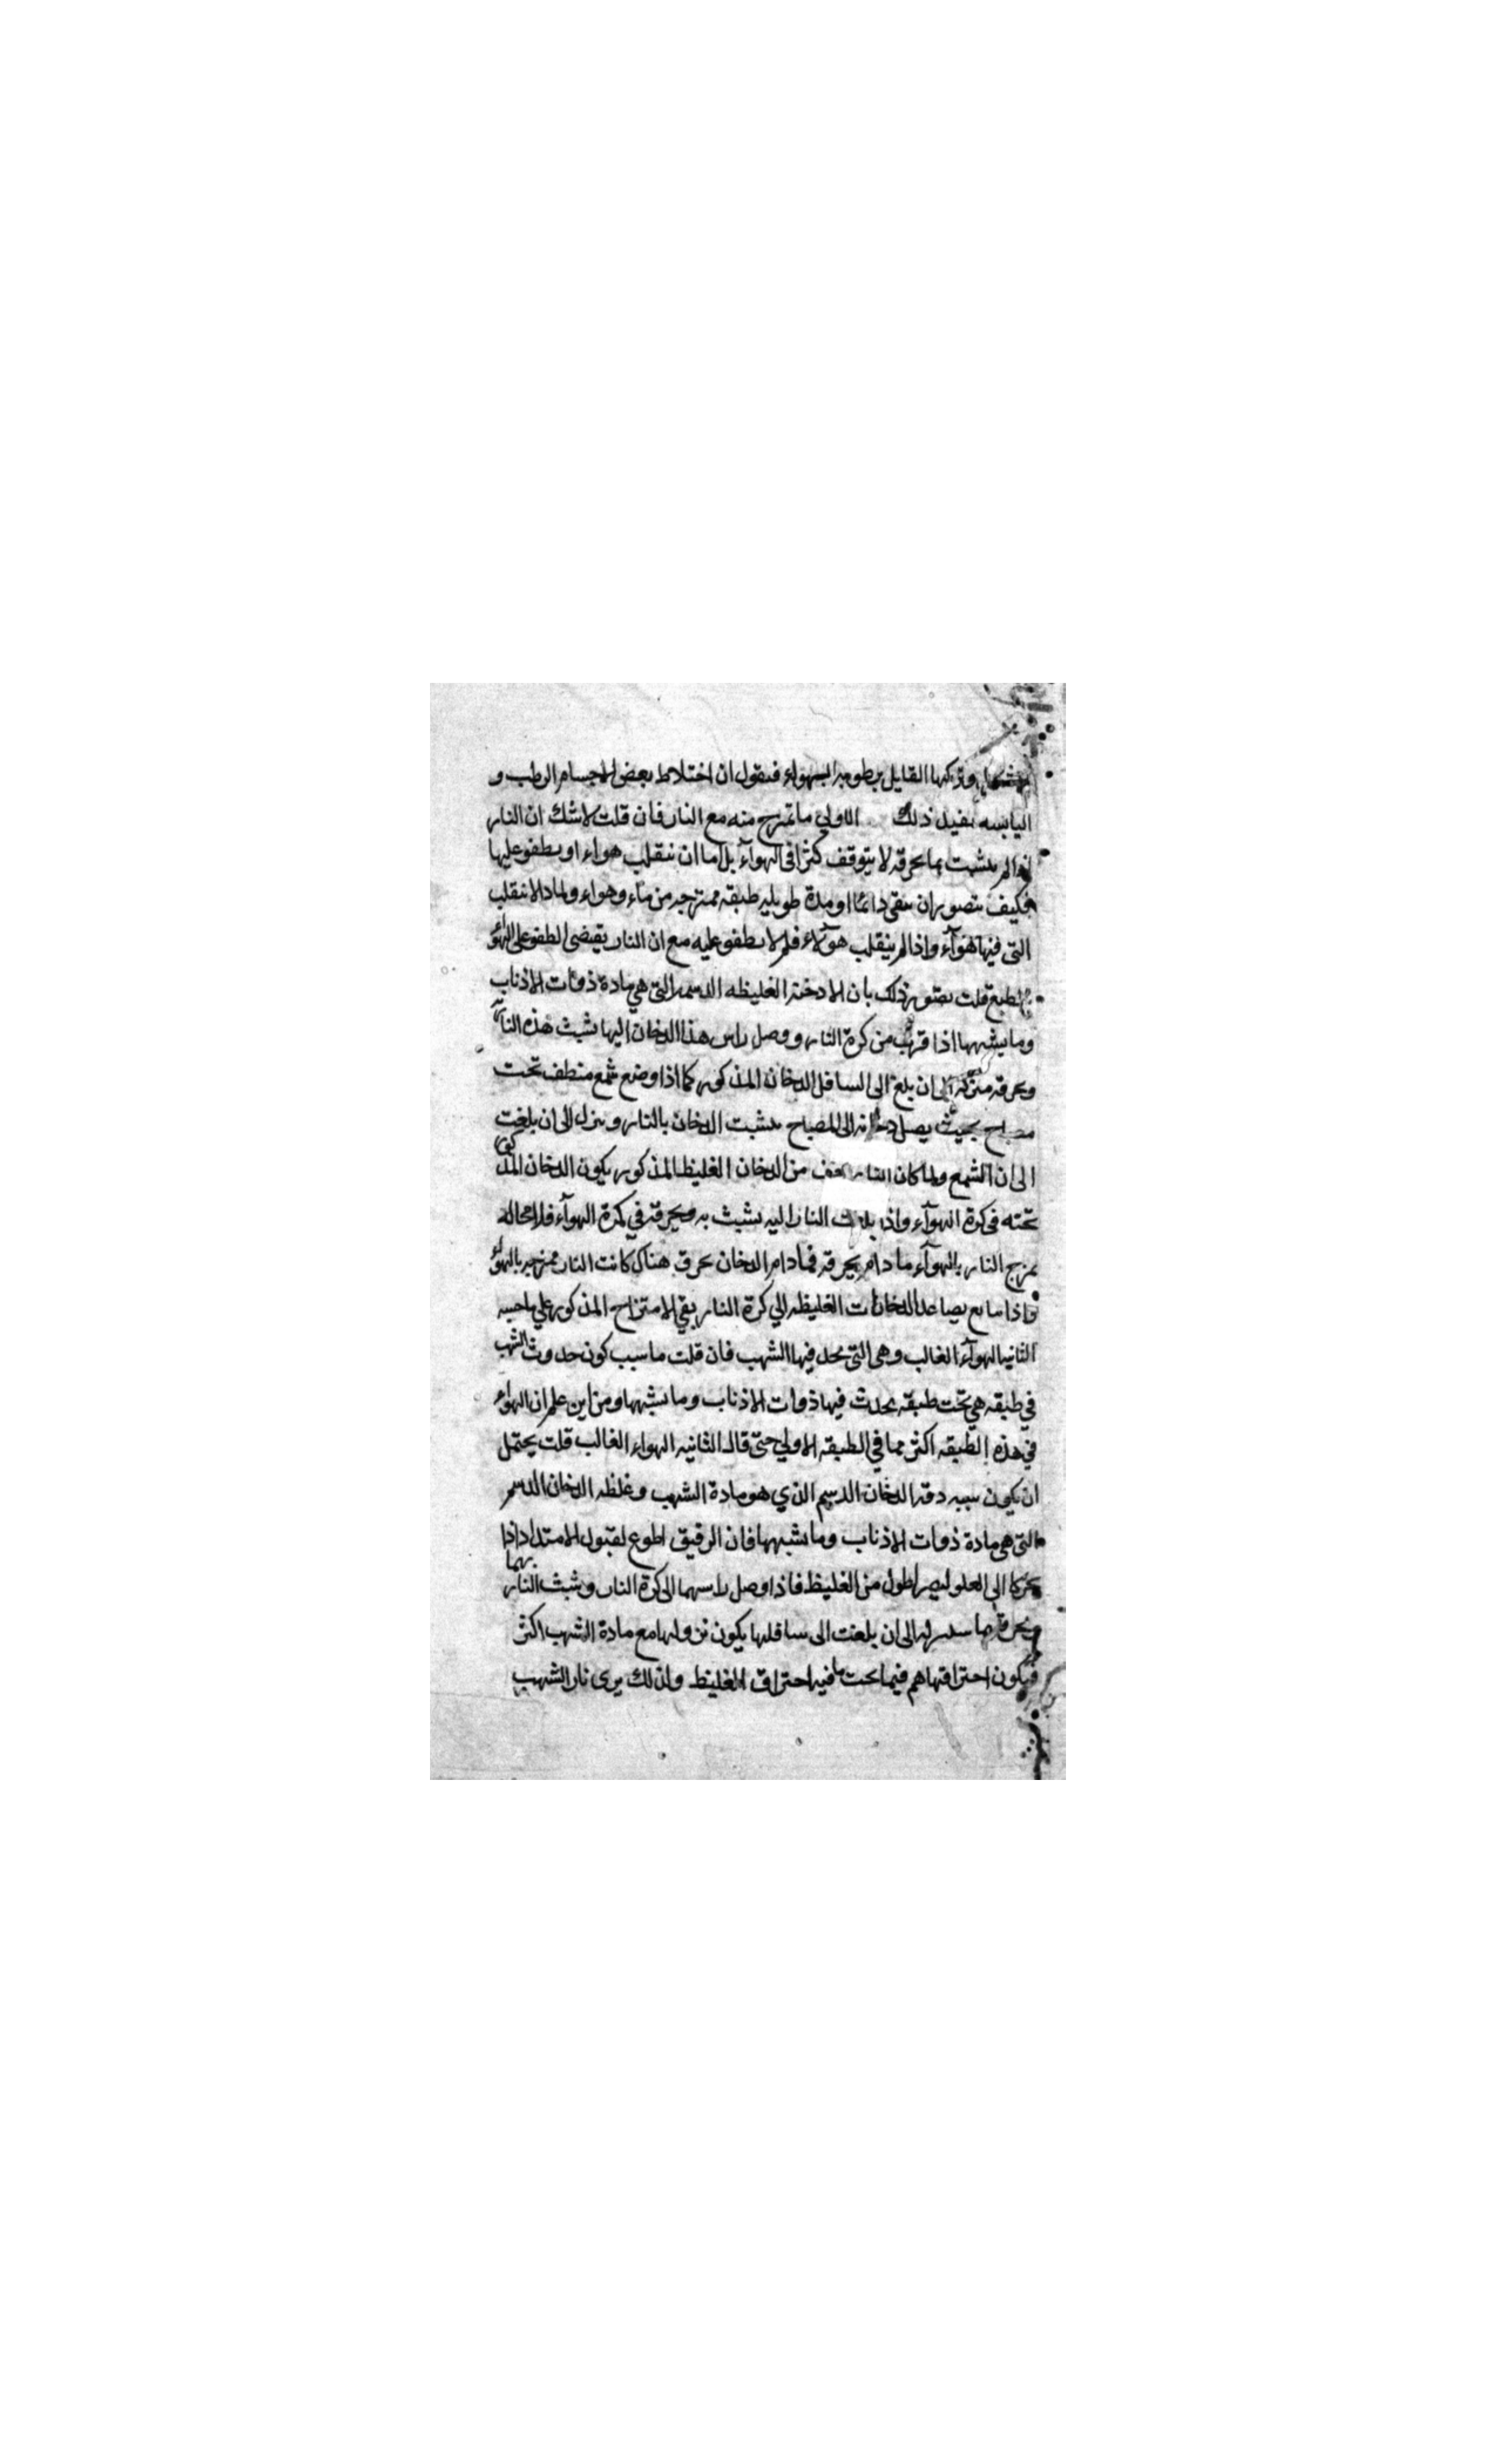 وتركها القايل برطوبه الهواء فيقول ان اختلاط بعض الاجسام الرطب و
اليابسه يفيد ذلك الاولي ما تمزج منه مع النار فان قلت لا شك ان النار
اذا لم تتشبث بما يحرقه لا يتوقف كثرا في الهوآء بل اما ان ينقلب هواء او يطفو عليها
فكيف يتصور ان يبقى دائما او مدة طويله طبقه ممتزجه من مآء وهواء ولما لا ينقلب
التي فيها هوآء واذا لم ينقلب هوآء فلم لا يطفو عليه مع ان النار يقتضى الطفو على الهوآء
بالطبع قلت يتصور ذلك بان الادخنه الغليظه الدسمه التي هي مادة ذوات الاذناب
وما يشبهها اذا قربت من كرة النار ووصل راس هذا الدخان اليها تشبث هذه النار
ويحرقه متركه الى ان بلغ الى السافل الدخان المذكور كما اذا وضع شمع منطف تحت
مصباح بحيث يصل دخانه الى المصباح يتشبث الدخان بالنار وينزل الى ان بلغت
الى ان الشمع ولما كان النار من الدخان الغليظ المذكور يكون الدخان المذكور
تحته في كرة الهوآء واذا بلغت النار اليه تشبث به ويحرقه في كرة الهوآء فلا محاله
يمزج النار بالهوآء ما دام يحرقه فما دام الدخان يحرق هناك كانت النار ممتزجه بالهوآء
واذا تصاعد الدخانات الغليظه الي كرة النار بقي الامتزاج المذكور علي
الثانيه الهوآء الغالب وهي التي يحد فيها الشهب فان قلت ما سبب كون حدوث الشهب
في طبقه هي تحت طبقه يحدث فيها ذوات الاذناب وما يشبهها ومن اين علم ان الهواء
في هذه الطبقه اكثر مما في الطبقه الاولي حتى قال الثانيه الهواء الغالب قلت يحتمل
ان يكون سببه دقه الدخان الدسم الذي هو مادة الشهب وغلظه الدخان الدسم
التي هي مادة ذوات الاذناب وما يشبهها فان الرقيق اطوع لقبول الامتداد اذا
يحركا الى العلو ليصر اطول من الغليظ فاذا وصل راسهما الى كرة النار وتشبث النار بهما
الى ان بلغت الى سافلها يكون نزولها مع مادة الشهب اكثر
فيكون احتراقها هم فيما تحت ما فيه احتراق الغليظ ولذلك يرى نار الشهب